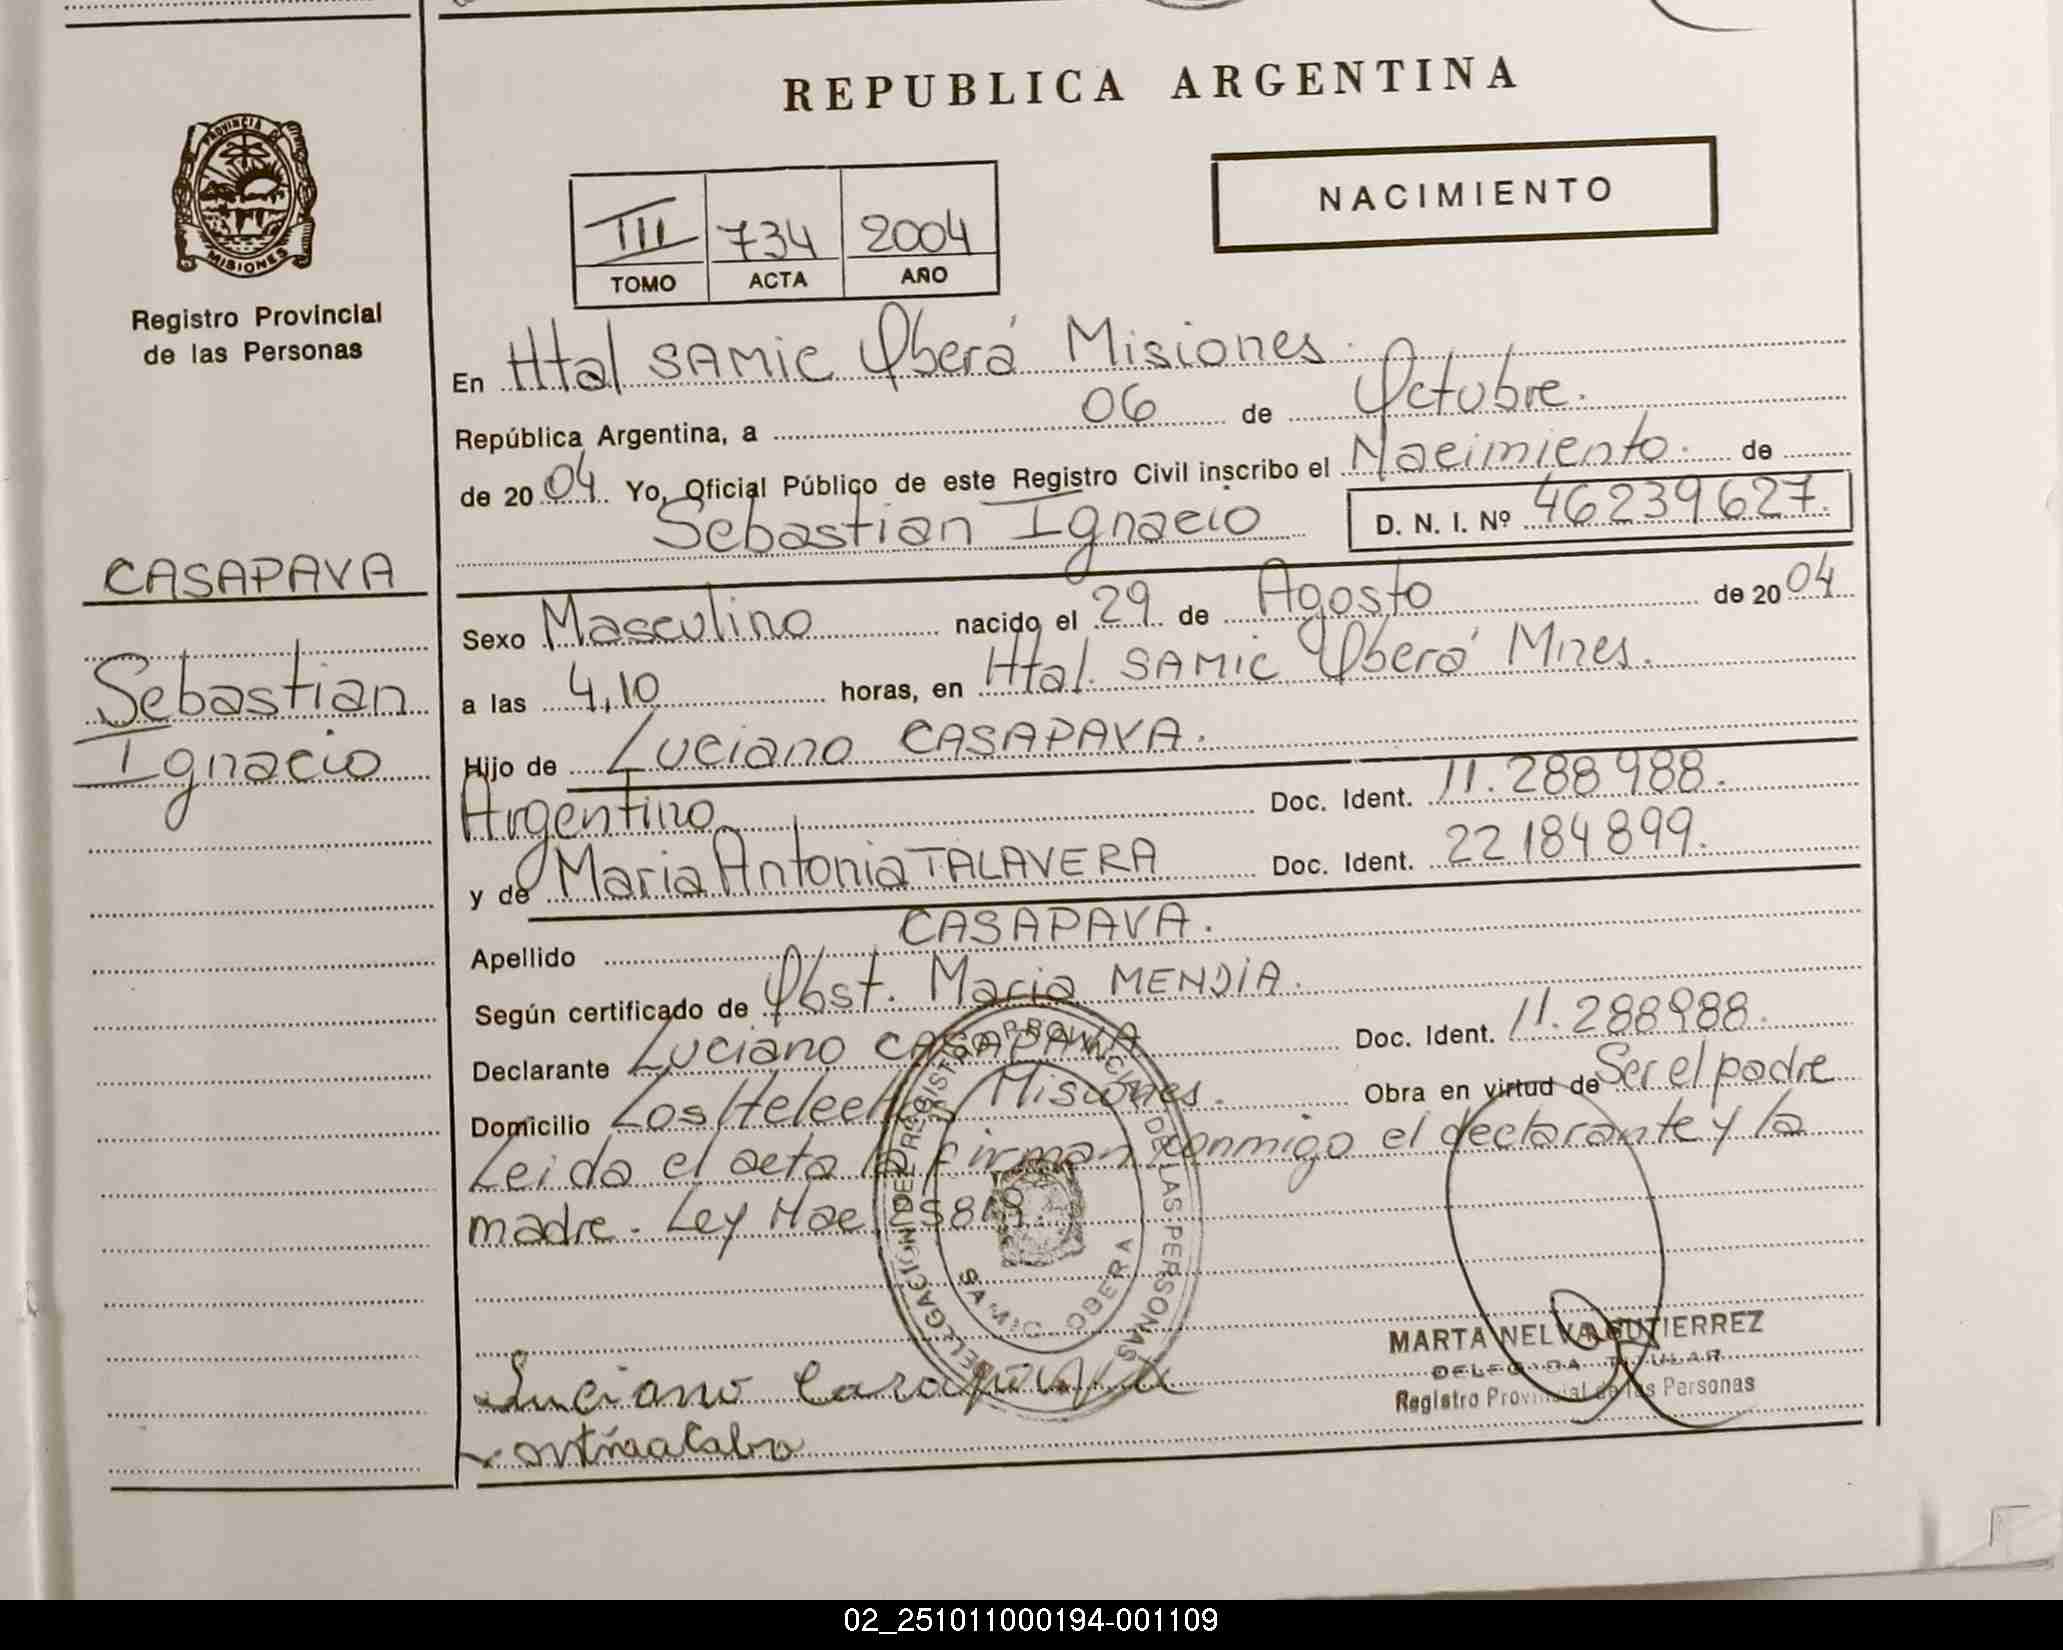 REPUBLICA ARGENTINA
PROVINCIA DE
MISIONES
Registro Provincial
de las Personas
NACIMIENTO
III 734 2004
TOMO ACTA AÑO
En Htal SAMIC Oberá Misiones.
República Argentina, a 06 de Octubre.
de 2004 Yo, Oficial Público de este Registro Civil inscribo el Nacimiento. de
Sebastian Ignacio D. N. I. Nº 46239627.
CASAPAVA
Sebastian
Ignacio
Sexo Masculino nacido el 29 de Agosto de 2004
a las 4,10 horas, en Htal. SAMIC Oberá Mnes.
Hijo de Luciano CASAPAVA.
Argentino Doc. Ident. 11.288988.
y de Maria Antonia TALAVERA Doc. Ident. 22184899.
Apellido CASAPAVA.
Según certificado de Obst. Maria MENDIA.
Declarante Luciano CASAPAVA Doc. Ident. 11.288988.
Domicilio Los Helechos Misiones. Obra en virtud de Ser el padre
Leida el acta la firman conmigo el declarante y la
madre. Ley Nac
DELEGACION DE REGISTRO PROVINCIAL DE LAS PERSONAS
SAMIC OBERA
MARTA NELVA GUTIERREZ
DELEGADA TITULAR
Registro Provincial de las Personas
Luciano Casapava
02_251011000194-001109